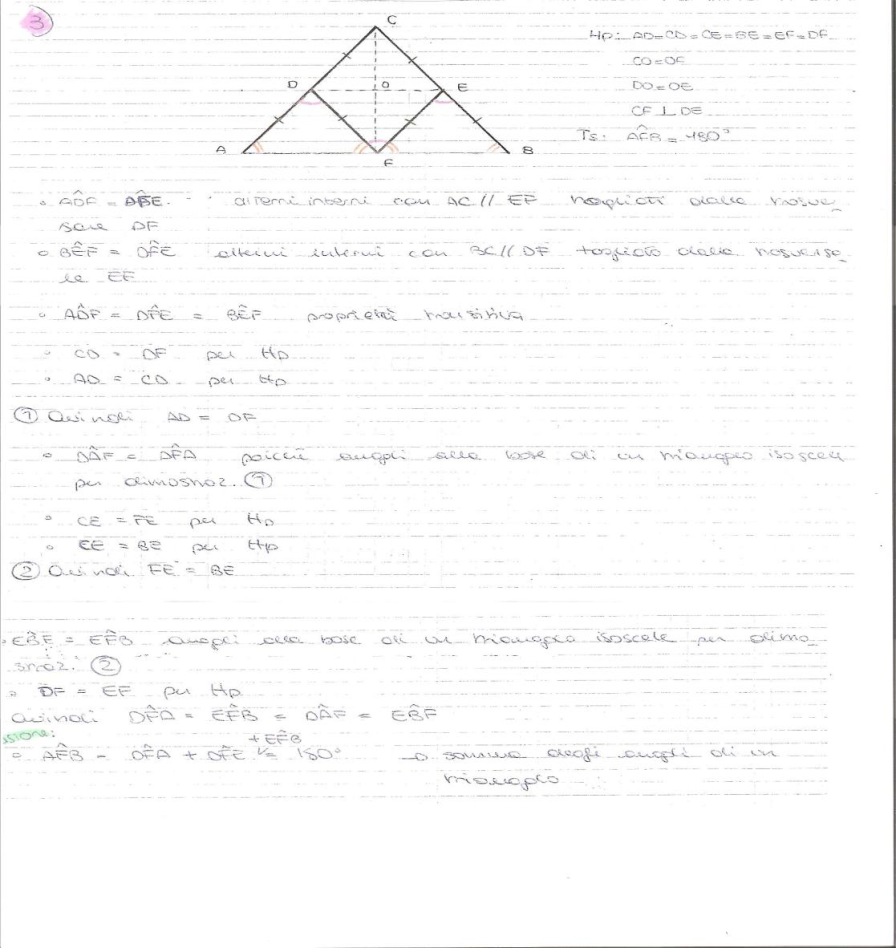 3
C
D
O
E
A
F
B
Hp: AD=CD=CE=BE=EF=DF
CO=OF
DO=OE
CF ⊥ DE
Ts: AF̂B = 180°
• AD̂F = DF̂E alterni interni con AC // EF tagliati dalla trasver_
sale DF
• BÊF = DF̂E alterni interni con BC // DF tagliato dalla trasversa_
le EF
• AD̂F = DF̂E = BÊF proprietà transitiva
• CD = DF per Hp
• AD = CD per Hp
① Quindi AD = DF
• DÂF = DF̂A poichè angoli alla base di un triangolo isoscele
per dimostraz. ①
• CE = FE per Hp
• CE = BE per Hp
② Quindi FE = BE
• EB̂F = EF̂B angoli alla base di un triangolo isoscele per dimo_
straz. ②
• DF = EF per Hp
Quindi DF̂A = EF̂B = DÂF = EB̂F
sione:
+ EF̂B
• AF̂B = DF̂A + DF̂E = 180° → somma degli angoli di un
triangolo